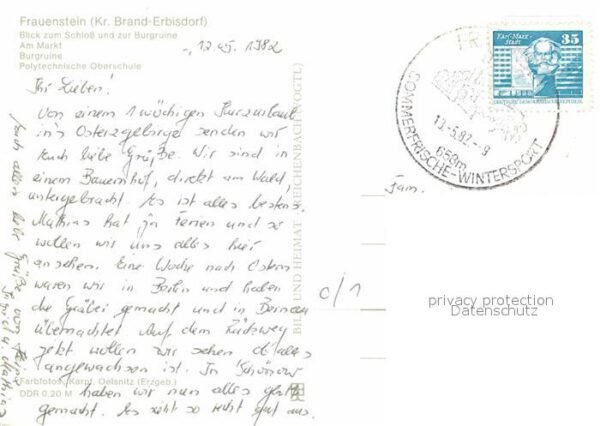 Frauenstein (Kr. Brand-Erbisdorf)
Blick zum Schloß und zur Burgruine
Am Markt
Burgruine
Polytechnische Oberschule
12.05.1982
Ihr Lieben!
Von einem 1 wöchigen Kurzurlaub
ins Osterzgebirge senden wir
Euch liebe Grüße. Wir sind in
einem Bauernhof, direkt am Wald,
untergebracht. Es ist alles bestens.
Mathias hat ja Ferien und so
wollen wir uns alles hier
ansehen. Eine Woche nach Ostern
waren wir in Berlin und haben
die Gräber gemacht und in Bernau
übernachtet. Auf dem Rückweg
jetzt wollen wir sehen ob alles
angewachsen ist. In Schönow
haben wir nun alles glatt
gemacht. Es sieht so recht gut aus.
Euch allen liebe Grüße von
Mathias
Farbfotos: Karpf, Oelsnitz (Erzgeb.)
DDR 0,20 M
BILD UND HEIMAT REICHENBACH (VOGTL)
0/1
Fam.
KARL-MARX-STADT
35
DEUTSCHE DEMOKRATISCHE REPUBLIK
13.5.82-8
650m
SOMMERFRISCHE-WINTERSPORT
privacy protection
Datenschutz